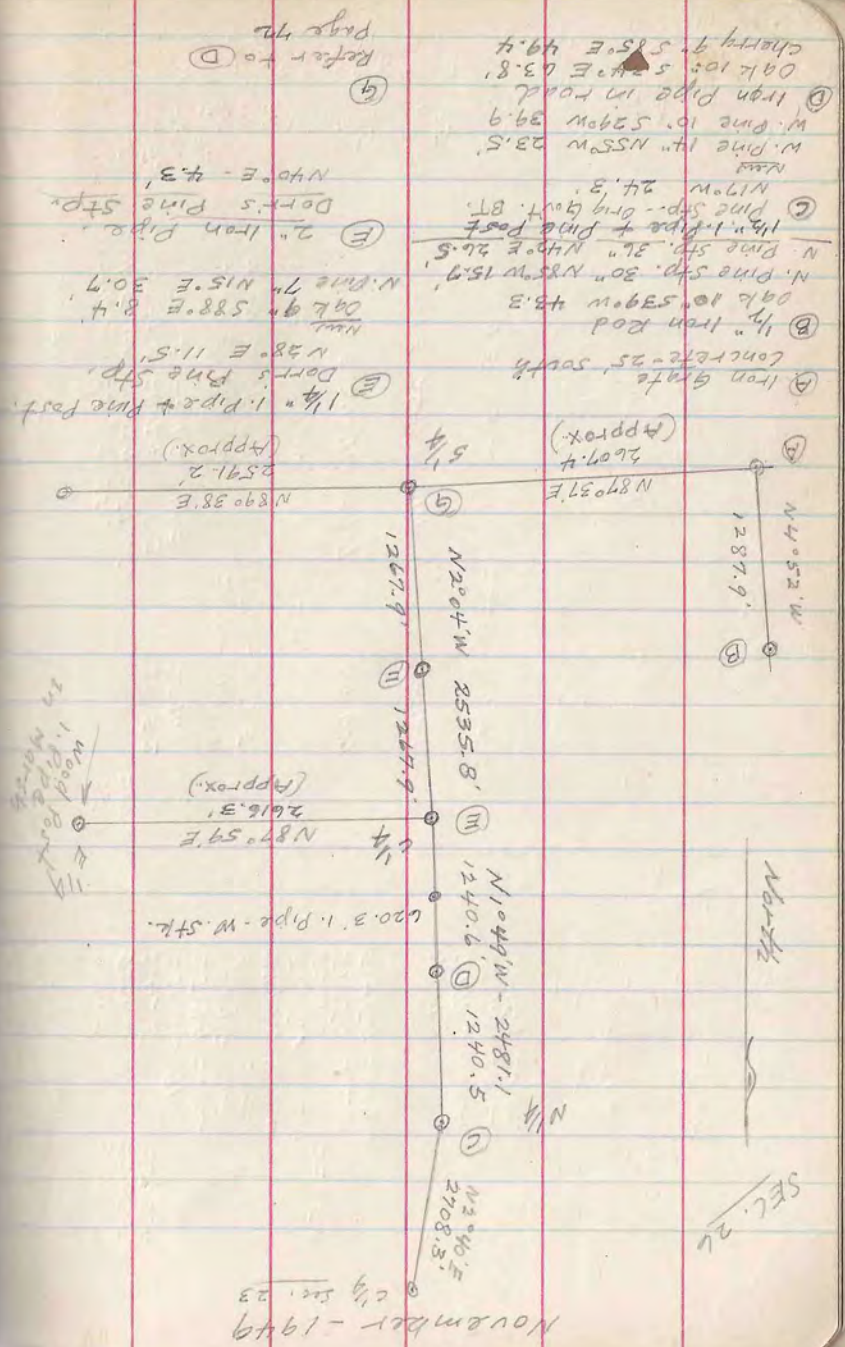 November - 1949
C 1/4 Sec. 23
SEC. 26
N2°40'E
2708.3'
C
N 1/4
North
N1°49'W - 2481.1
1240.5
D
1240.6'
620.3' I. Pipe - W. Stk.
C 1/4
N87°59'E
2616.3'
(Approx.)
E 1/4
Wood Post
I. Pipe
In Marsh
E
N2°04'W 2535.8'
1267.9'
E
1267.9'
B
N4°52'W
1287.9'
A
N87°37'E
2607.4
(Approx)
G
S 1/4
N89°38'E
2591.2'
(Approx.)
A Iron Grate
Concrete - 25' South
B 1/2" Iron Rod
Oak 10" S39°W 43.3
N. Pine Stp. 30" N85°W 15.7'
N. Pine Stp. 36" N42°E 26.5'
1 1/2" I. Pipe & Pine Post
C Pine Stp. - Orig Govt. BT.
N17°W 24.3'
New
W. Pine 14" N55°W 23.5'
W. Pine 10" S29°W 39.9
D Iron Pipe in road
Oak 10" S °E 63.8'
Cherry 9" S85°E 49.4
E 1 1/4" I. Pipe & Pine Post.
Dorr's Pine Stp.
N28°E 11.5'
New
Oak 9" S88°E 8.4'
N. Pine 7" N15°E 30.7'
E 2" Iron Pipe -
Dorr's Pine Stp.
N40°E - 4.3'
G
Refer to D
Page 72